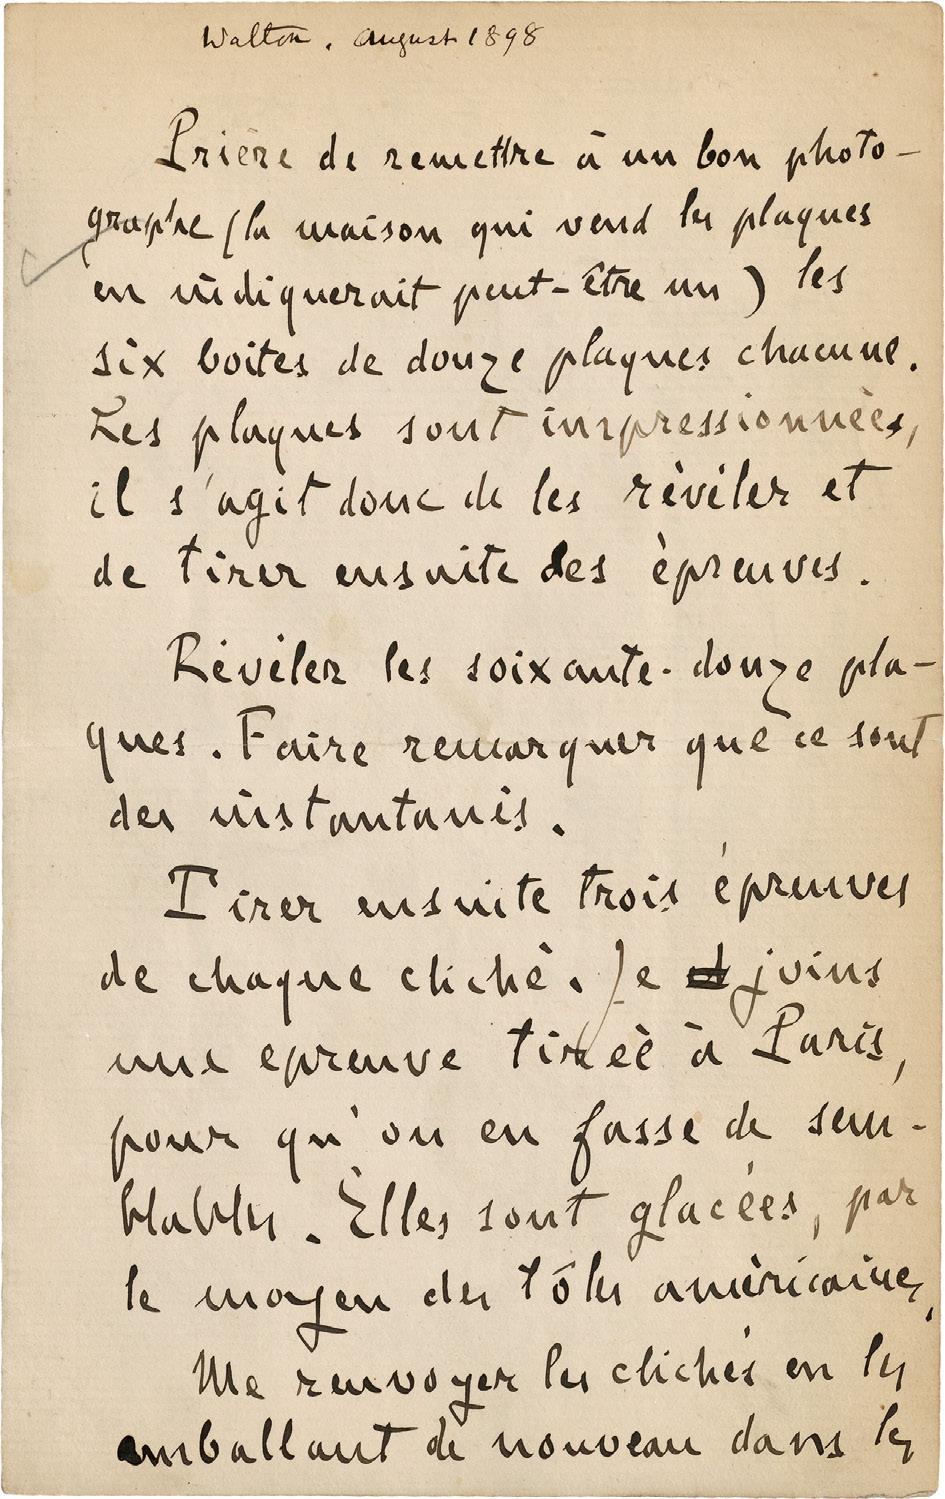 Walton. August 1898
Prière de remettre à un bon photo-
graphe (la maison qui vend les plaques
en indiquerait peut-être un) les
six boites de douze plaques chacune.
Les plaques sont impressionnées,
il s'agit donc de les révéler et
de tirer ensuite des épreuves.
Révéler les soixante-douze pla-
ques. Faire remarquer que ce sont
des instantanés.
Tirer ensuite trois épreuves
de chaque cliché. Je joins
une epreuve tirée à Paris,
pour qu'on en fasse de sem-
blables. Elles sont glacées, par
le moyen des tôles américaines.
Me renvoyer les clichés en les
emballant de nouveau dans les